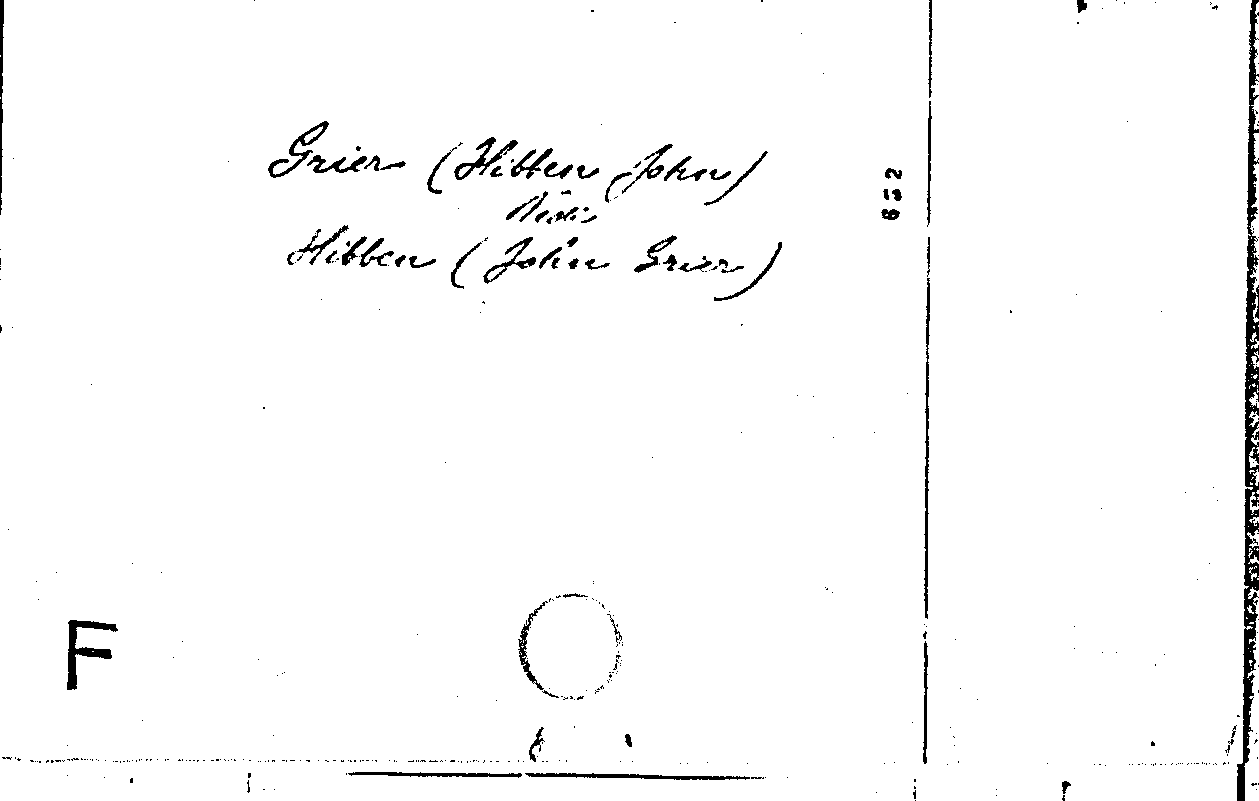 Grier (Hibben John)
Hibben (John Grier)
652
F